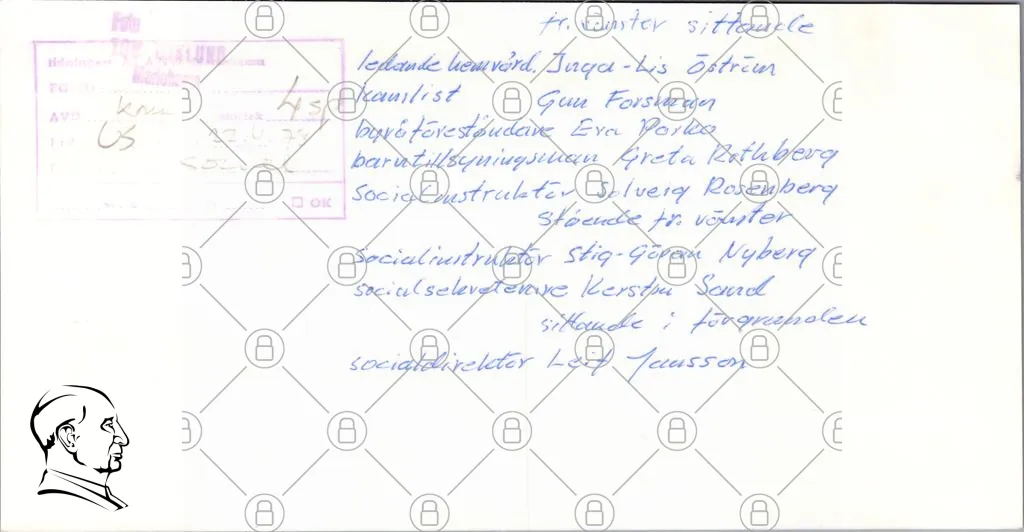 Foto
Mariehamn
4 sp
US
OK
fr. vänster sittande
ledande hemvård. Inga-Lis Öström
kanslist Gun Forsman
byråföreståndare Eva Parko
barntillsyningsman Greta Rothberg
socialinstruktör Solveig Rosenberg
Stående fr. vänster
socialinstruktör Stig-Göran Nyberg
socialsekreterare Kerstin Sand
sittande i förgrunden
socialdirektör Leif Jansson